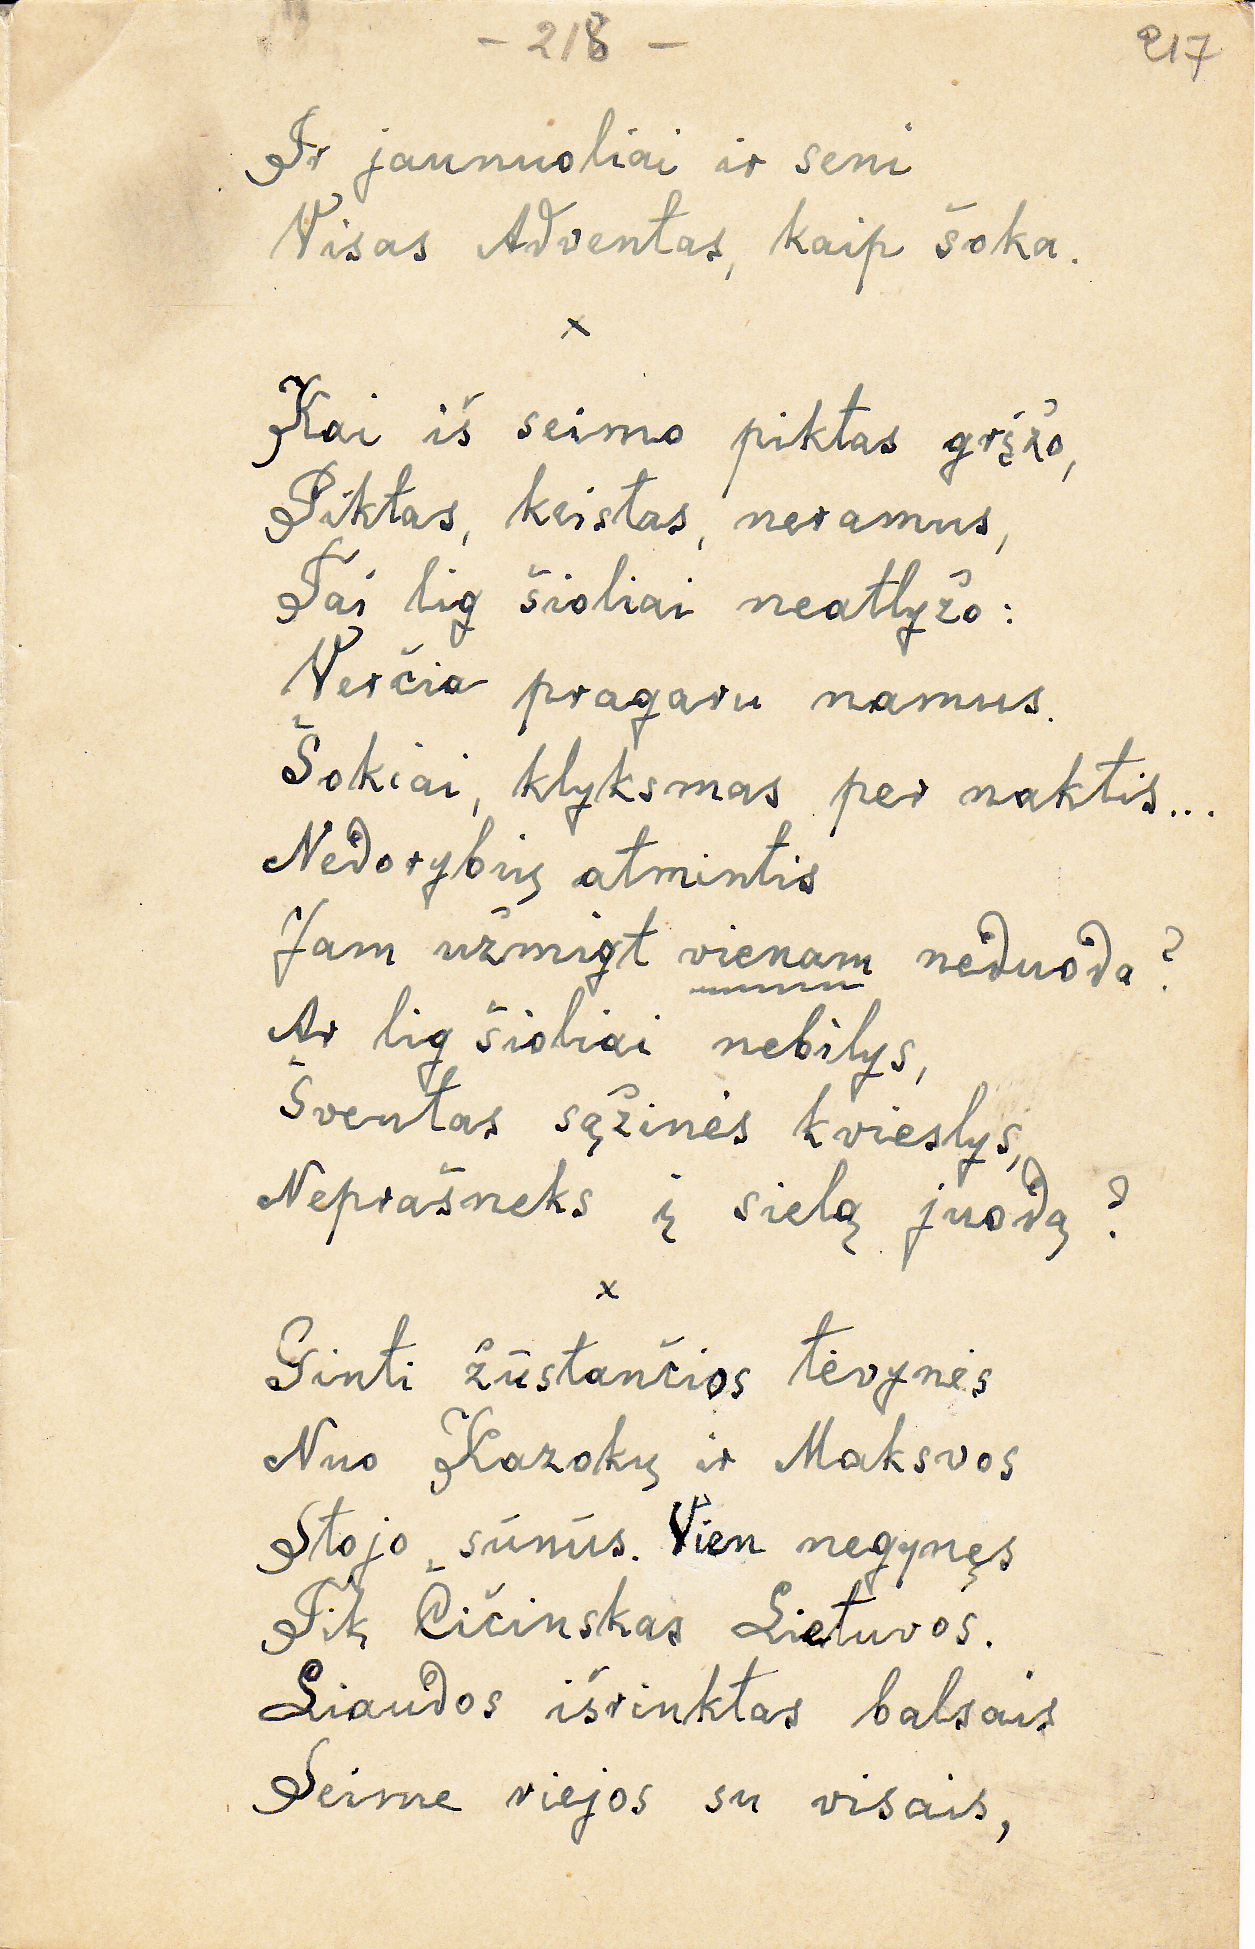 - 218 -
217
Ir jaunuoliai ir seni
Visas Adventas, kaip šoka.
x
Kai iš seimo piktas grįžo,
Piktas, keistas, neramus,
Tai lig šioliai neatlyžo:
Verčia pragaru namus.
Šokiai, klyksmas per naktis...
Nedorybių atmintis
Jam užmigt vienam neduoda?
Ar lig šioliai nebilys,
Šventas sąžinės kvieslys,
Neprašneks į sielą juodą?
x
Ginti žūstančios tėvynės
Nuo Kazokų ir Maksvos
Stojo sūnūs. Vien negynęs
Tik Čičinskas Lietuvos.
Liaudos išrinktas balsais
Seime riejos su visais,